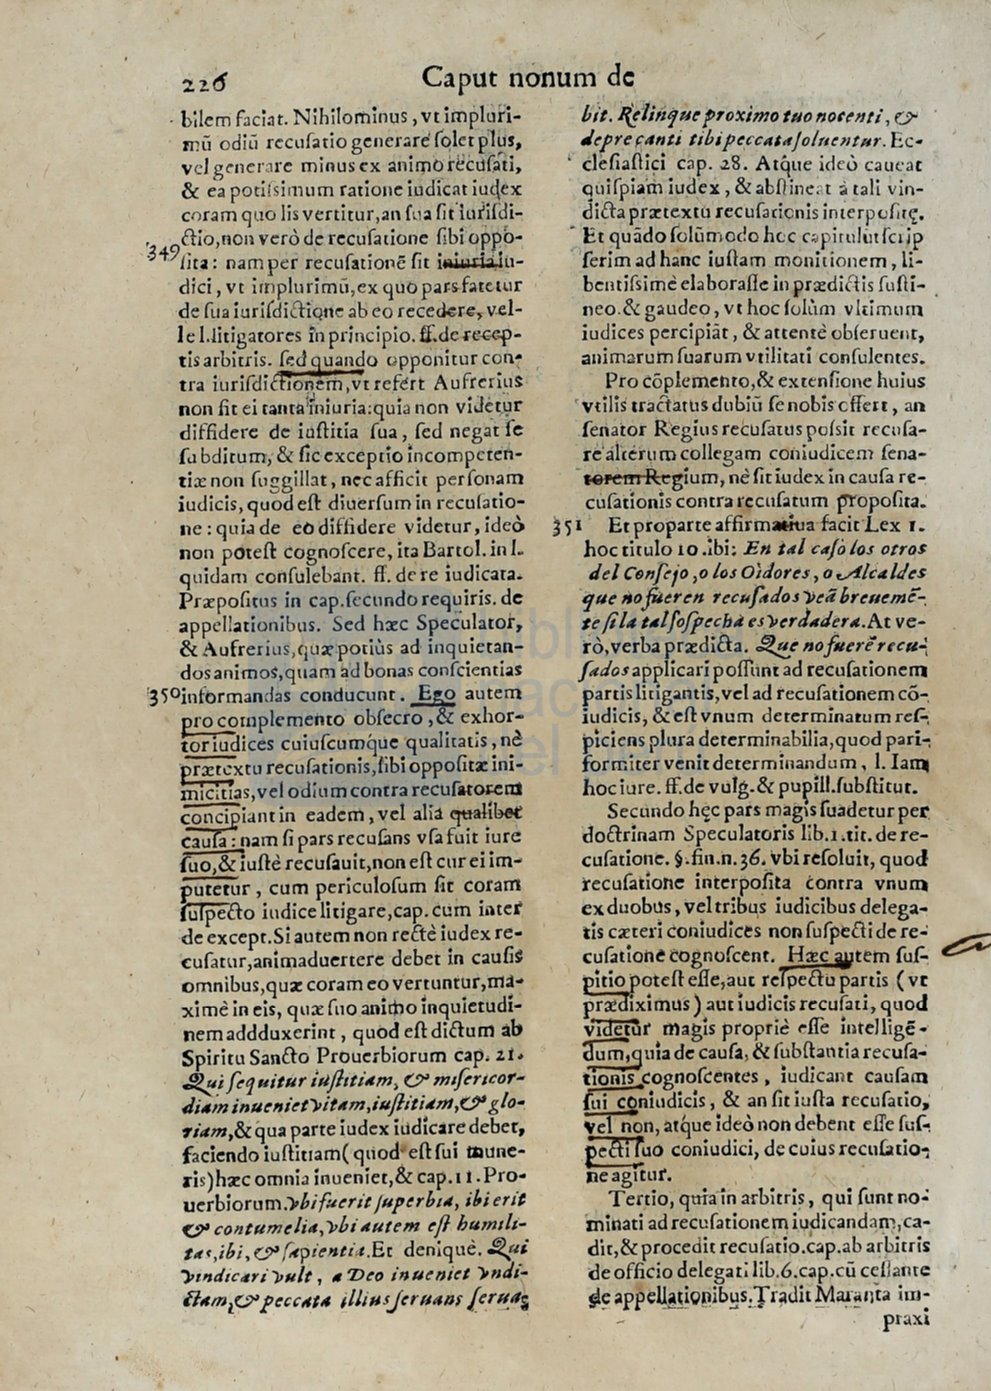 226
Caput nonum de
bilem faciat. Nihilominus, vt impluri-
mū odiū recusatio generare solet plus,
vel generare minus ex animo recusati,
& ea potissimum ratione iudicat iudex
coram quo lis vertitur, an sua sit iurisdi-
ctio, non verò de recusatione sibi oppo-
349
sita: nam per recusationē fit iniuria iu-
dici, vt implurimū, ex quo pars fatetur
de sua iurisdictione ab eo recedere, vel-
le l. litigatores in principio. ff. de recep-
tis arbitris. sed quando opponitur con-
tra iurisdictionem, vt refert Aufrerius
non fit ei tanta iniuria: quia non videtur
diffidere de iustitia sua, sed negat se
subditum, & sic exceptio incompeten-
tiæ non suggillat, nec afficit personam
iudicis, quod est diuersum in recusatio-
ne: quia de eo diffidere videtur, ideò
non potest cognoscere, ita Bartol. in l.
quidam consulebant. ff. de re iudicata.
Præpositus in cap. secundo requiris. de
appellationibus. Sed hæc Speculator,
& Aufrerius, quæ potiùs ad inquietan-
dos animos, quam ad bonas conscientias
350 informandas conducunt. Ego autem
pro complemento obsecro, & exhor-
tor iudices cuiuscumque qualitatis, nè
prætextu recusationis, sibi oppositæ ini-
micitias, vel odium contra recusatorem
concipiant in eadem, vel alia qualibet
causa: nam si pars recusans vsa fuit iure
suo, & iustè recusauit, non est cur ei im-
putetur, cum periculosum sit coram
suspecto iudice litigare, cap. cum inter
de except. Si autem non rectè iudex re-
cusatur, animaduertere debet in causis
omnibus, quæ coram eo vertuntur, ma-
ximè in eis, quæ suo animo inquietudi-
nem addduxerint, quod est dictum ab
Spiritu Sancto Prouerbiorum cap. 21.
Qui sequitur iustitiam, & misericor-
diam inueniet vitam, iustitiam, & glo-
riam, & qua parte iudex iudicare debet,
faciendo iustitiam (quod est sui mune-
ris) hæc omnia inueniet, & cap. 11. Pro-
uerbiorum. Vbi fuerit superbia, ibi erit
& contumelia, vbi autem est humili-
tas, ibi, & sapientia. Et deniquè. Qui
vindicari vult, a Deo inueniet vndi-
ctam, & peccata illius seruans serua-
bit. Relinque proximo tuo nocenti, &
deprecanti tibi peccata soluentur. Ec-
clesiastici cap. 28. Atque ideò caueat
quispiam iudex, & abstineat à tali vin-
dicta prætextu recusationis interpositę.
Et quādo solūmodo hoc capitulū scrip
serim ad hanc iustam monitionem, li-
bentissimè elaborasse in prædictis susti-
neo. & gaudeo, vt hoc solùm vltimum
iudices percipiāt, & attentè obseruent,
animarum suarum vtilitati consulentes.
Pro cōplemento, & extensione huius
vtilis tractatus dubiū se nobis offert, an
senator Regius recusatus possit recusa-
re alterum collegam coniudicem sena-
torem Regium, nè sit iudex in causa re-
cusationis contra recusatum proposita.
351 Et pro parte affirmatiua facit Lex 1.
hoc titulo 10. ibi: En tal caso los otros
del Consejo, o los Oidores, o Alcaldes
que no fueren recusados veā breuemē-
te si la tal sospecha es verdadera. At ve-
rò, verba prædicta. Que no fuerē recu-
sados applicari possunt ad recusationem
partis litigantis, vel ad recusationem cō-
iudicis, & est vnum determinatum res-
piciens plura determinabilia, quod pari-
formiter venit determinandum, l. Iam
hoc iure. ff. de vulg. & pupill. substitut.
Secundo hęc pars magis suadetur per
doctrinam Speculatoris lib. 1. tit. de re-
cusatione. §. fin. n. 36. vbi resoluit, quod
recusatione interposita contra vnum
ex duobus, vel tribus iudicibus delega-
tis cæteri coniudices non suspecti de re-
cusatione cognoscent. Hæc autem sus-
pitio potest esse, aut respectu partis (vt
prædiximus) aut iudicis recusati, quod
videtur magis propriè esse intelligē-
dum, quia de causa, & substantia recusa-
tionis cognoscentes, iudicant causam
sui coniudicis, & an sit iusta recusatio,
vel non, atque ideò non debent esse sus-
pecti suo coniudici, de cuius recusatio-
ne agitur.
Tertio, quia in arbitris, qui sunt no-
minati ad recusationem iudicandam, ca-
dit, & procedit recusatio. cap. ab arbitris
de officio delegati lib. 6. cap. cū cessante
de appellationibus. Tradit Maranta im-
praxi